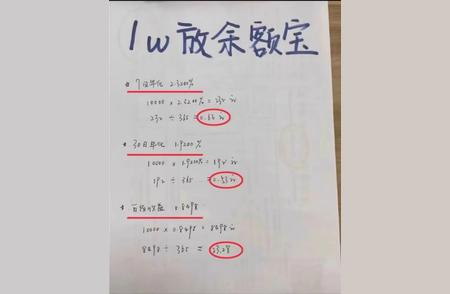 1w放余额宝
7日年化 2.3200%
10000 × 2.3200% = 232元
232 ÷ 365 = 0.63元
30日年化 1.9200%
10000 × 1.9200% = 192元
192 ÷ 365 = 0.53元
百份收益 0.8498
10000 × 0.8498 = 8498元
8498 ÷ 365 = 23.28